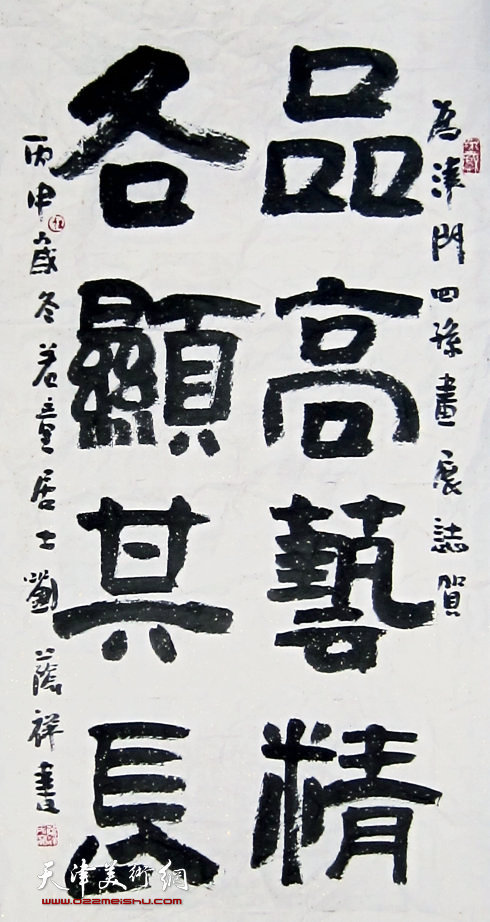 为津門四孫畫展誌賀
品高藝精
各顯其長
丙申歲冬若童居士劉蔭祥書
天津美術網
www.022meishu.com